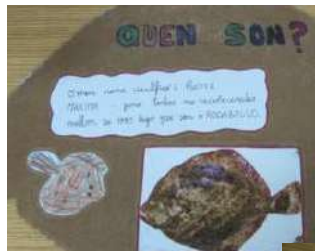 QUEN SON?
O meu nome científico é
MAXIMA - pero todos me
mellor se vos digo que son o RODABALLO.